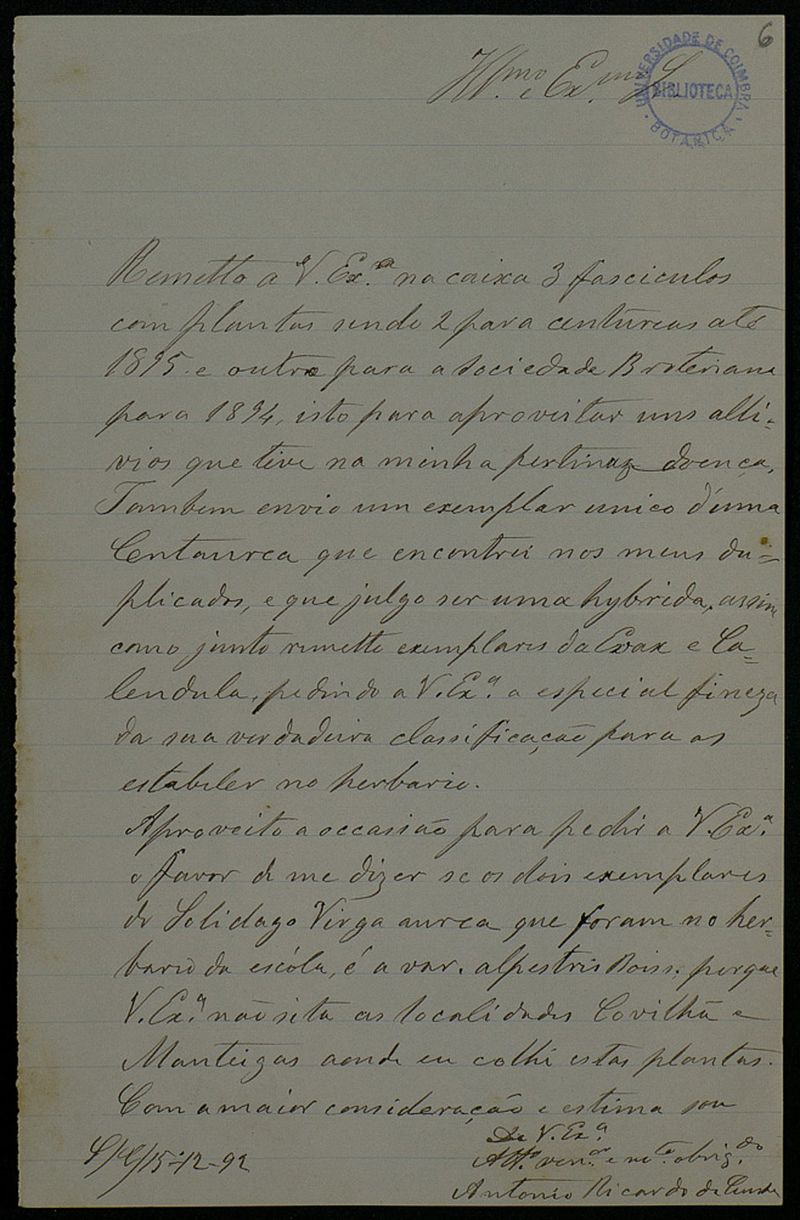 6
UNIVERSIDADE DE COIMBRA
BIBLIOTECA
BOTANICA
Ill.mo e Ex.mo S.
Remetto a V. Ex.a na caixa 3 fasciculos
com plantas sendo 2 para centureas até
1895 e outro para a Sociedade Broteriana
para 1894, isto para aproveitar uns alli-
vios que tive na minha pertinaz doença.
Tambem envio um exemplar unico d'uma
Centaurea que encontrei nos meus du=
plicados, e que julgo ser uma hybrida, assim
como junto remetto exemplares da Evax e Ca-
lendula, pedindo a V. Ex.a a especial fineza
da sua verdadeira classificação para as
estabeler no herbario.
Aproveito a occasião para pedir a V. Ex.a
o favor de me dizer se os dois exemplares
de Solidago Virga aurea que foram no her-
bario da escóla, é a var. alpestris Boiss. porque
V. Ex.a não sita as localidades Covilhã e
Manteigas aonde eu colhi estas plantas.
Com a maior consideração e estima sou
De V. Ex.a
S/C 15-12-92
Att.o ven.or e m.to obrig.do
Antonio Ricardo da Cunha